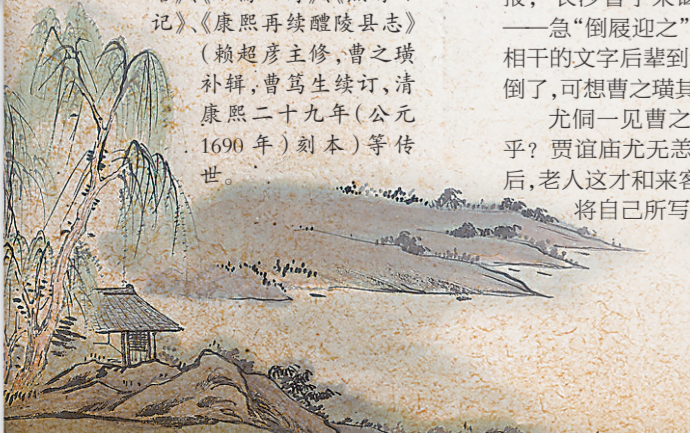 记》、《康熙再续醴陵县志》
(赖超彦主修,曹之璜
补辑,曹笃生续订、清
康熙二十九年(公元
1690 年)刻本)等传
世。
——急“倒屐迎之”
相干的文字后辈到
倒了,可想曹之璜其
尤侗一见曹之
乎?贾谊庙尤无恙
后,老人这才和来客
将自己所写